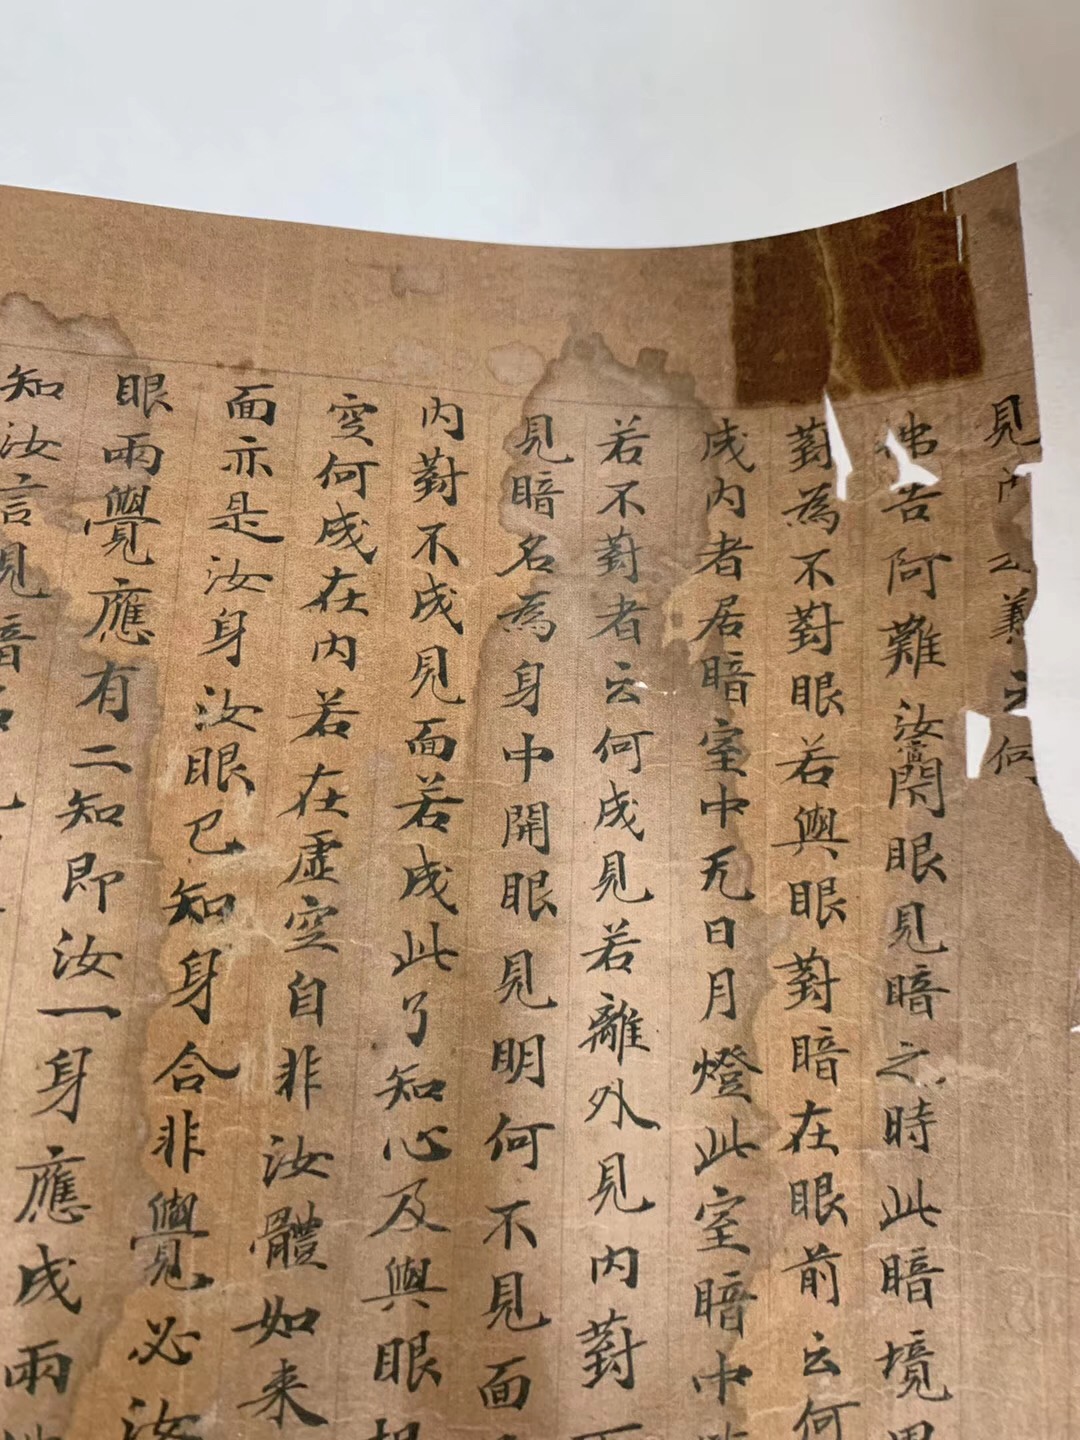 見內此義云何
佛告阿難汝當閇眼見暗之時此暗境界
對為不對眼若與眼對暗在眼前云何
成內者居暗室中无日月燈此室暗中
若不對者云何成見若離外見內對
見暗名為身中開眼見明何不見面
內對不成見面若成此了知心及與眼根
空何成在內若在虛空自非汝體如来
面亦是汝身汝眼已知身合非覺必汝
眼兩覺應有二知即汝一身應成兩
知汝言見暗名見